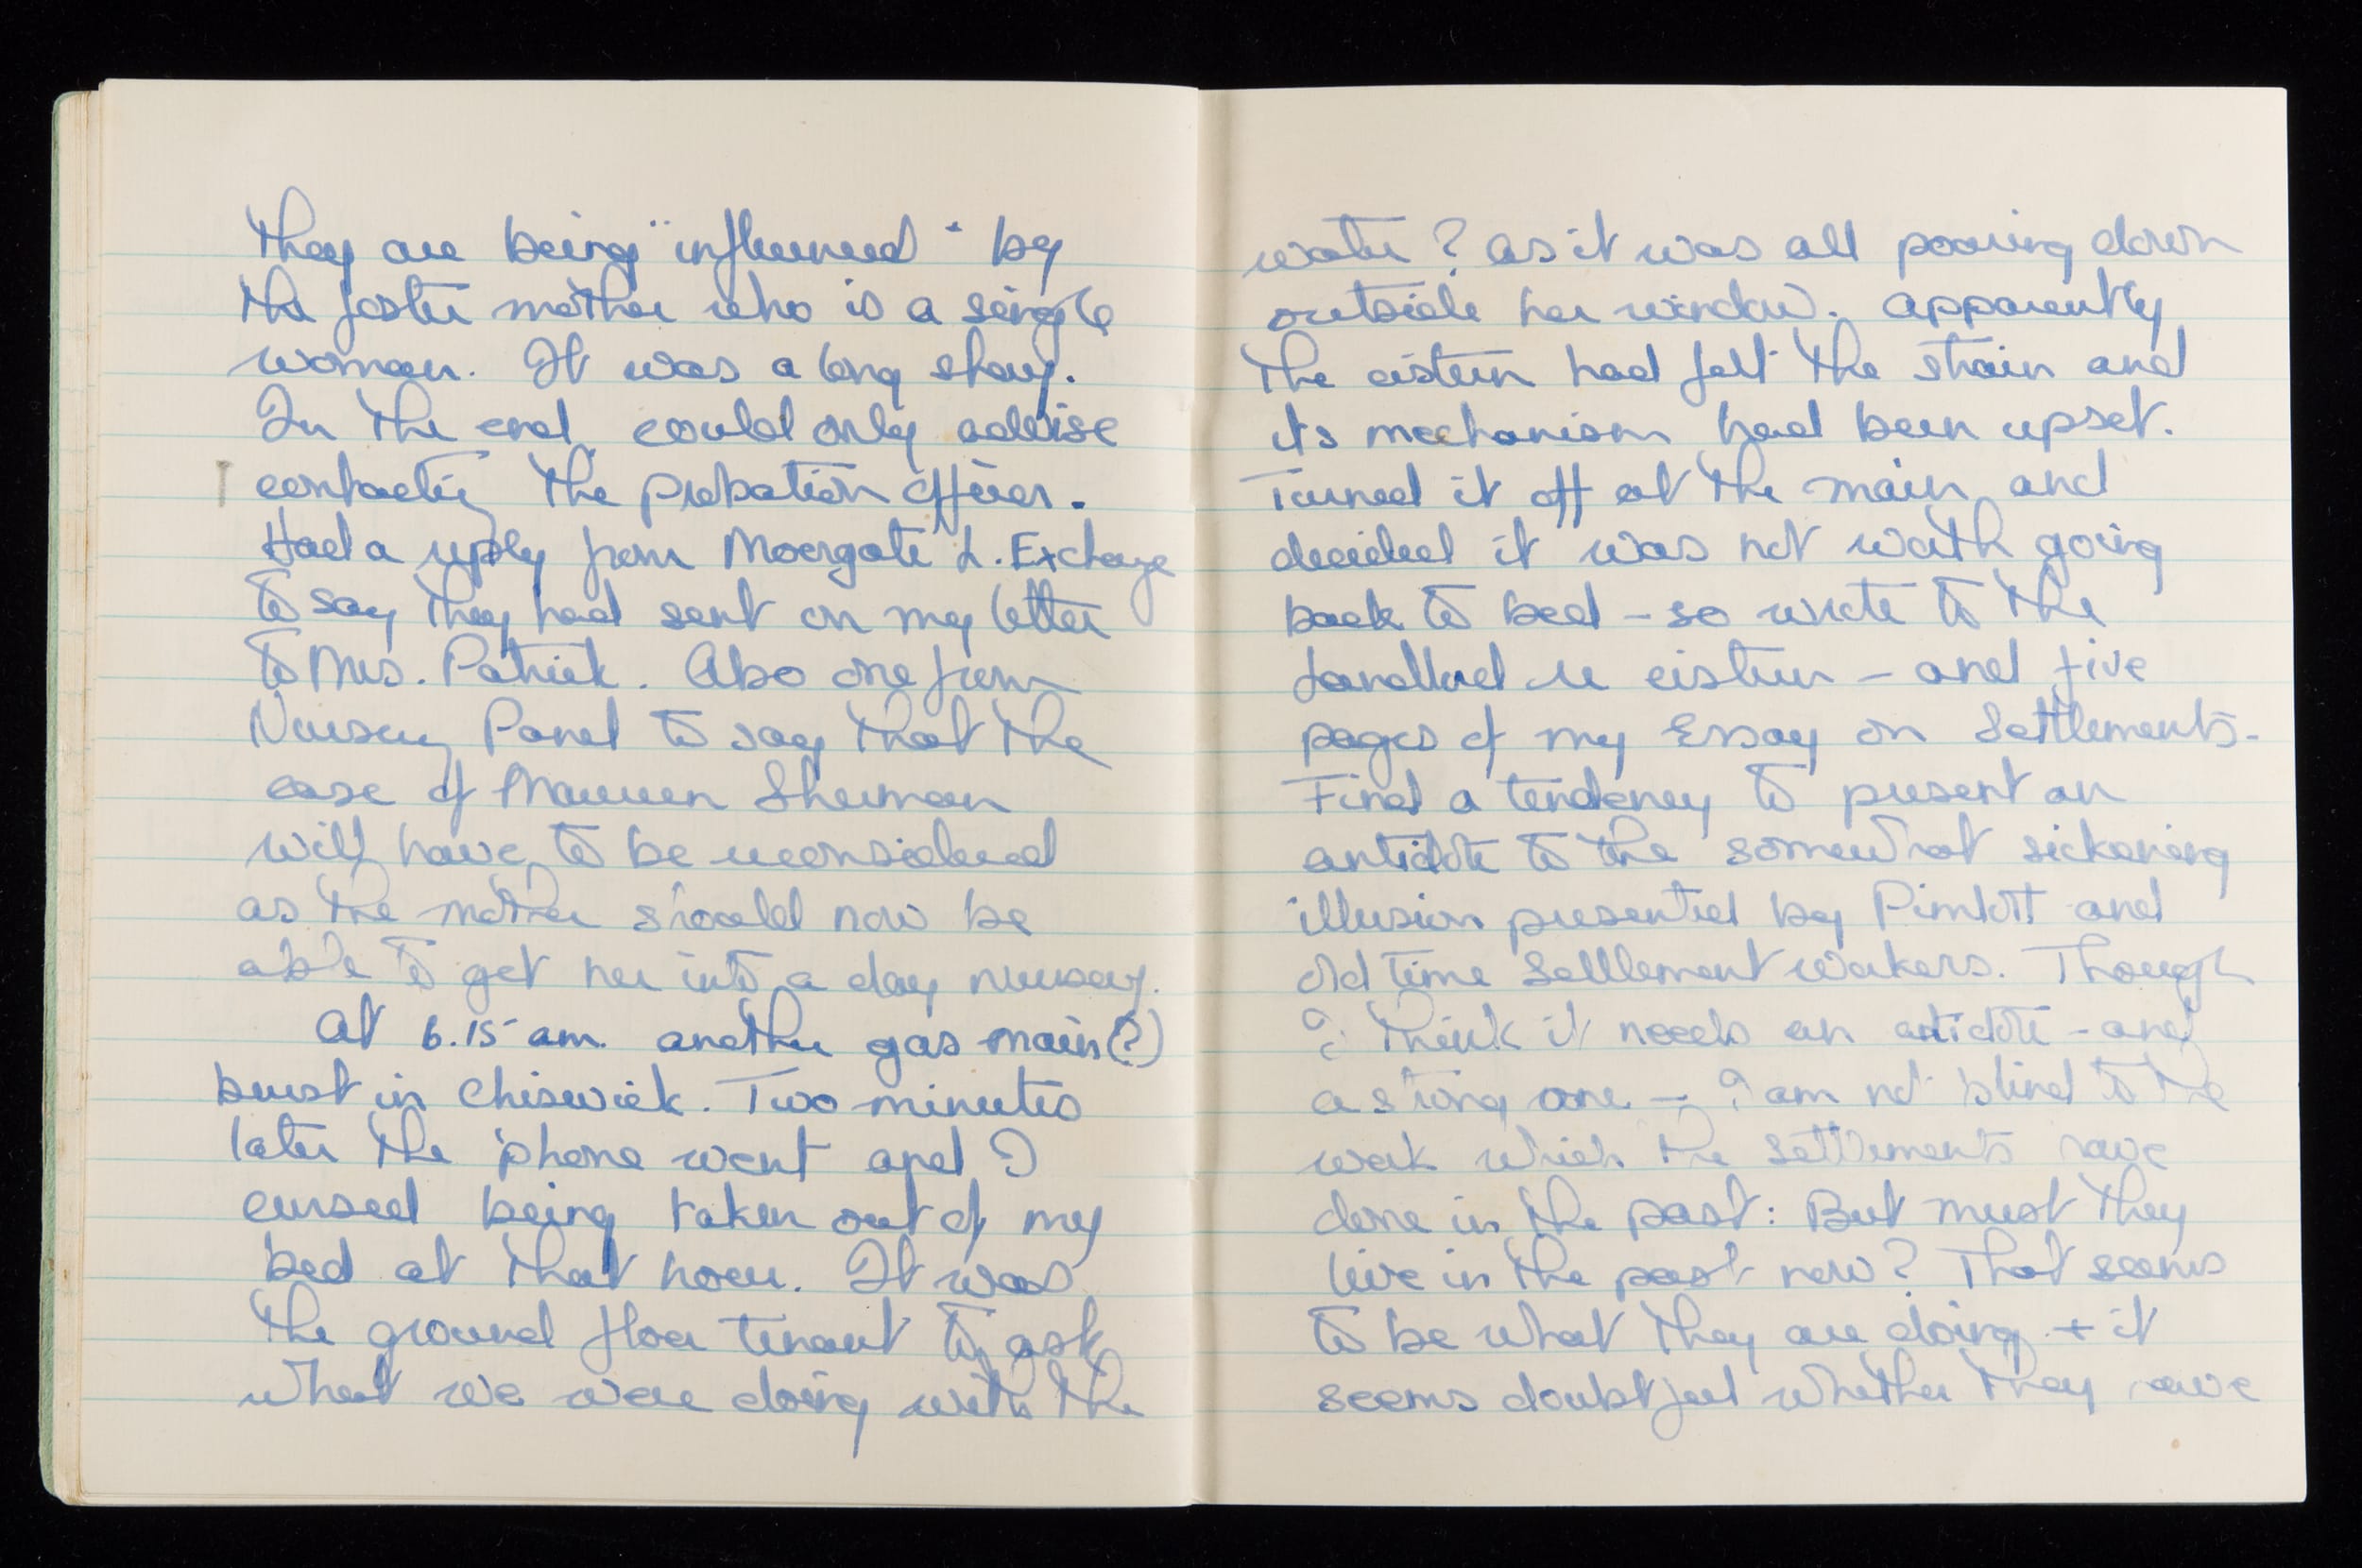 they are being "influenced" by
the foster mother who is a single
woman. It was a long story.
In the end could only advise
contacting the probation officer.
Had a reply from Moorgate L. Exchange
to say they had sent on my letter
to Mrs. Patrick. Also one from
Nursery Panel to say that the
case of Maureen Sherman
will have to be reconsidered
as the mother should now be
able to get her into a day nursery.
At 6.15 am. another gas main (?)
burst in Chiswick. Two minutes
later the 'phone went and I
cursed being taken out of my
bed at that hour. It was
the ground floor tenant to ask
what we were doing with the
water? as it was all pouring down
outside her window. Apparently
the cistern had felt the strain and
its mechanism had been upset.
Turned it off at the main and
decided it was not worth going
back to bed - so wrote to the
landlord re cistern - and five
pages of my Essay on Settlements.
Find a tendency to present an
antidote to the somewhat sickening
illusion presented by Pimlott and
old time Settlement workers. Though
I think it needs an antidote - and
a strong one - I am not blind to the
work which the settlements have
done in the past: But must they
live in the past now? That seems
to be what they are doing + it
seems doubtful whether they have